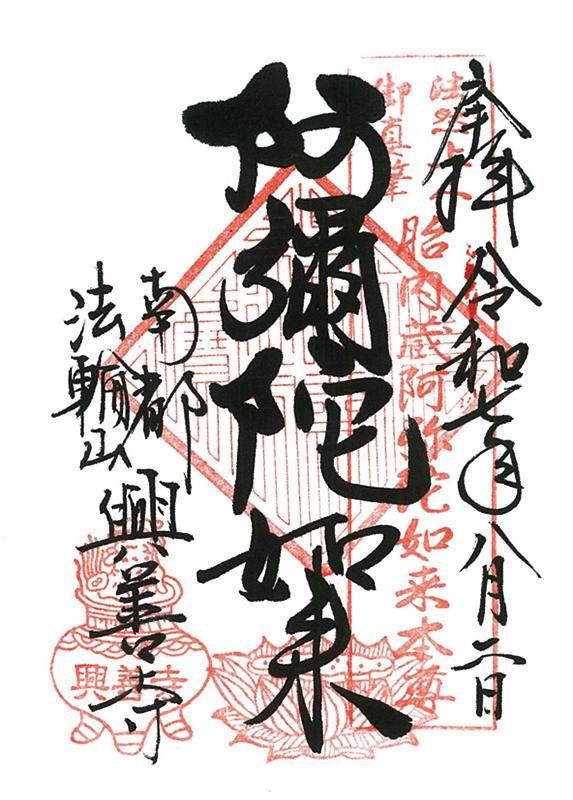 奉拝 令和七年八月二日
法然上人
御真筆
胎内蔵阿弥陀如来本尊
阿彌陀如来
南都
法輪山
興善寺
興善寺